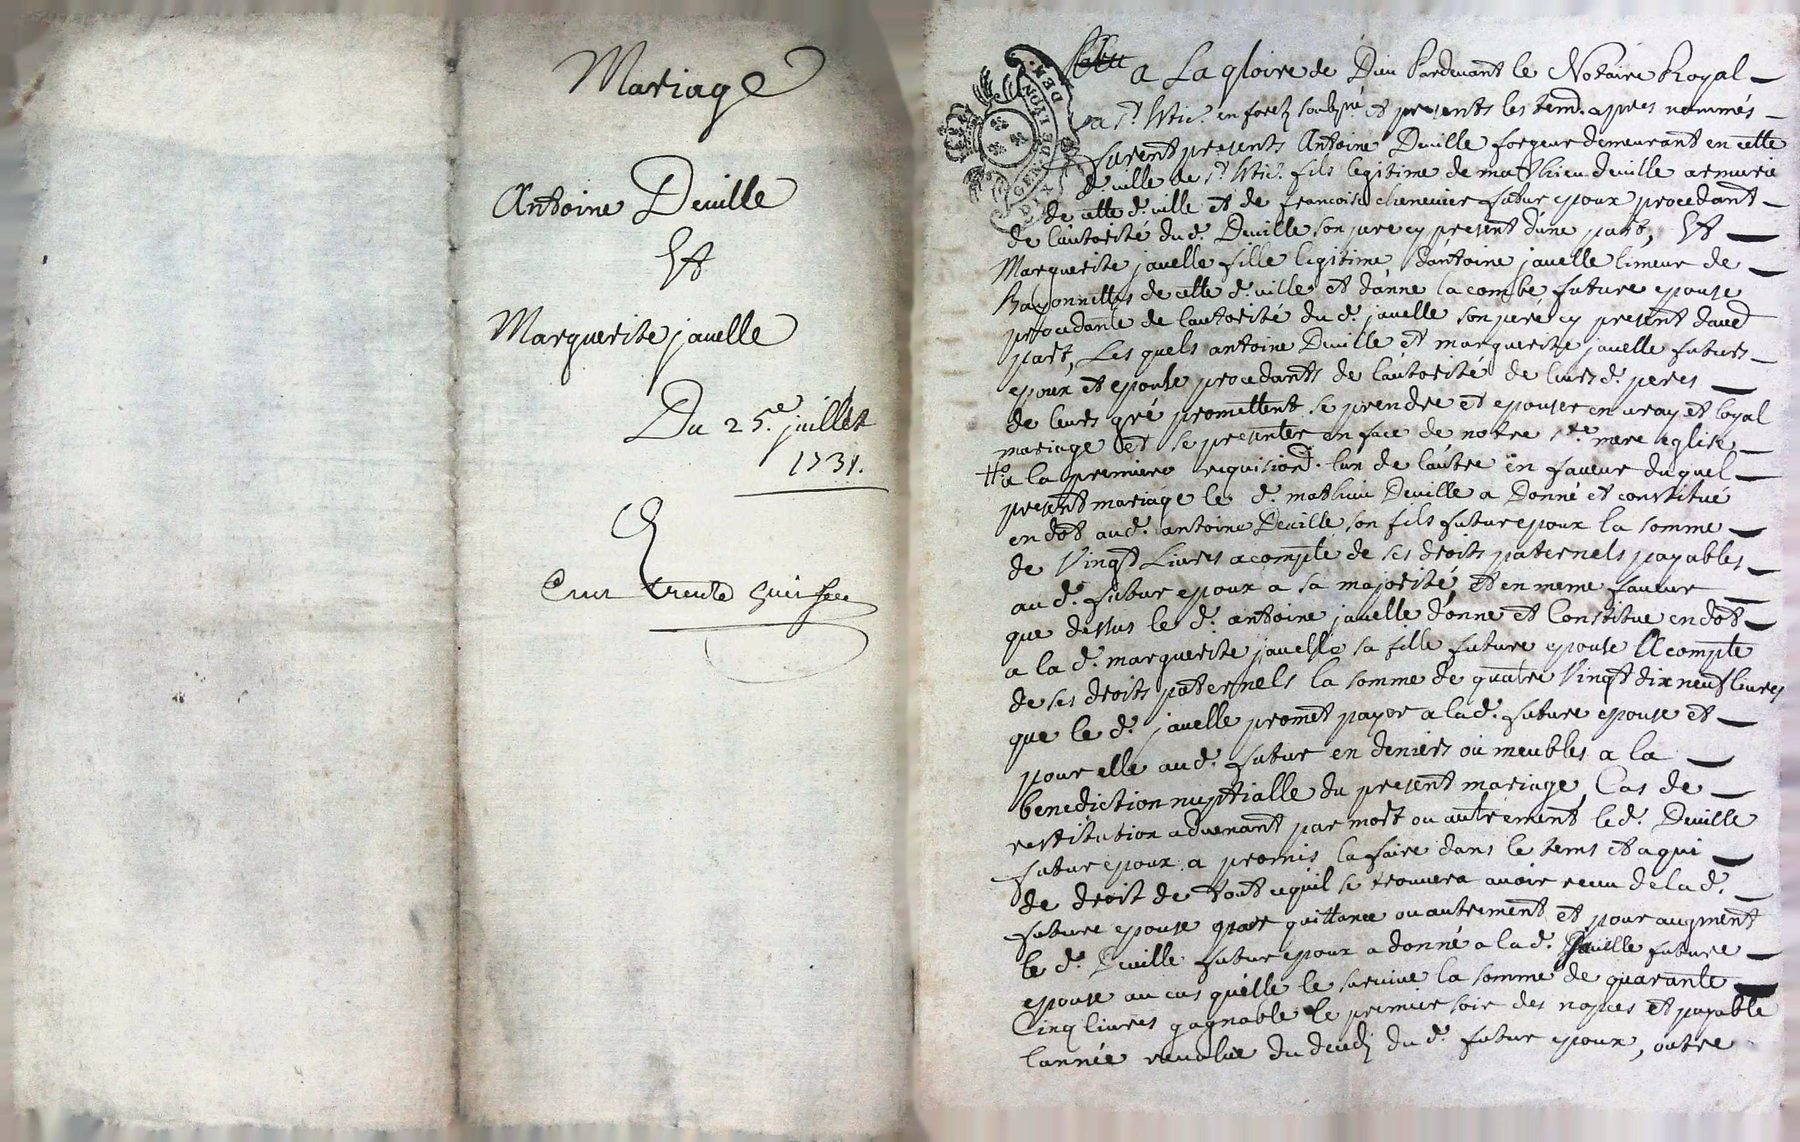 Mariage
Antoine Deville
Et
Marguerite javelle
Du 25.e juillet
1731.
Cent trente huit
GEN. DE LYON
a La gloire de Dieu Pardevant le Notaire Royal
a St. Etie. en forez soubsné. et presents les temd. apres nommés
furent presents Antoine Deville forgeur demeurant en cette
d. ville de St. Etie. fils legitime de mathieu deville armurie
de cette d. ville et de francoise chenevier futur epoux procedant
de lautorité du d. Deville son pere cy present d'une part, Et
Marguerite javelle fille legitime d'antoine javelle limeur de
Bayonnettes de cette d. ville et d'anne lacombe future epouse
procedante de lautorité du d. javelle son pere cy present dautre
part, Les quels antoine Deville et marguerite javelle futurs
epoux et epouse procedants de lautorité de leurs d. peres
de leurs gré promettent se prendre et epouser en vray et loyal
mariage et se presenter en face de notre ste. mere eglise
a la premiere requision. lun de lautre en faveur duquel
present mariage le d. mathieu Deville a Donné et constitué
en dot aud. antoine Deville son fils futur epoux la somme
de Vingt Livres acompte de ses droits paternels payables
au d. futur epoux a sa majorité, et en meme faveur
que dessus le d. antoine javelle donne et Constitue en dot
a la d. marguerite javelle sa fille future epouse A compte
de ses droits paternels la somme de quatre Vingt dix neuf livres
que le d. javelle promet payer a la d. future epouse et
pour elle au d. futur en deniers ou meubles a la
benediction nuptialle du present mariage, Cas de
restitution advenant par mort ou autrement le d. Deville
futur epoux a promis la faire dans le tems et a qui
de droit de tout cequil se trouvera avoir receu de la d.
future epouse par quittance ou autrement et pour augment
le d. Deville futur epoux a donné a la d. Javelle future
epouse au cas qu'elle le survive la somme de quarante
Cinq livres gagnable le premier soir des nopces et payable
lannée revolue du deceds du d. futur epoux, outre